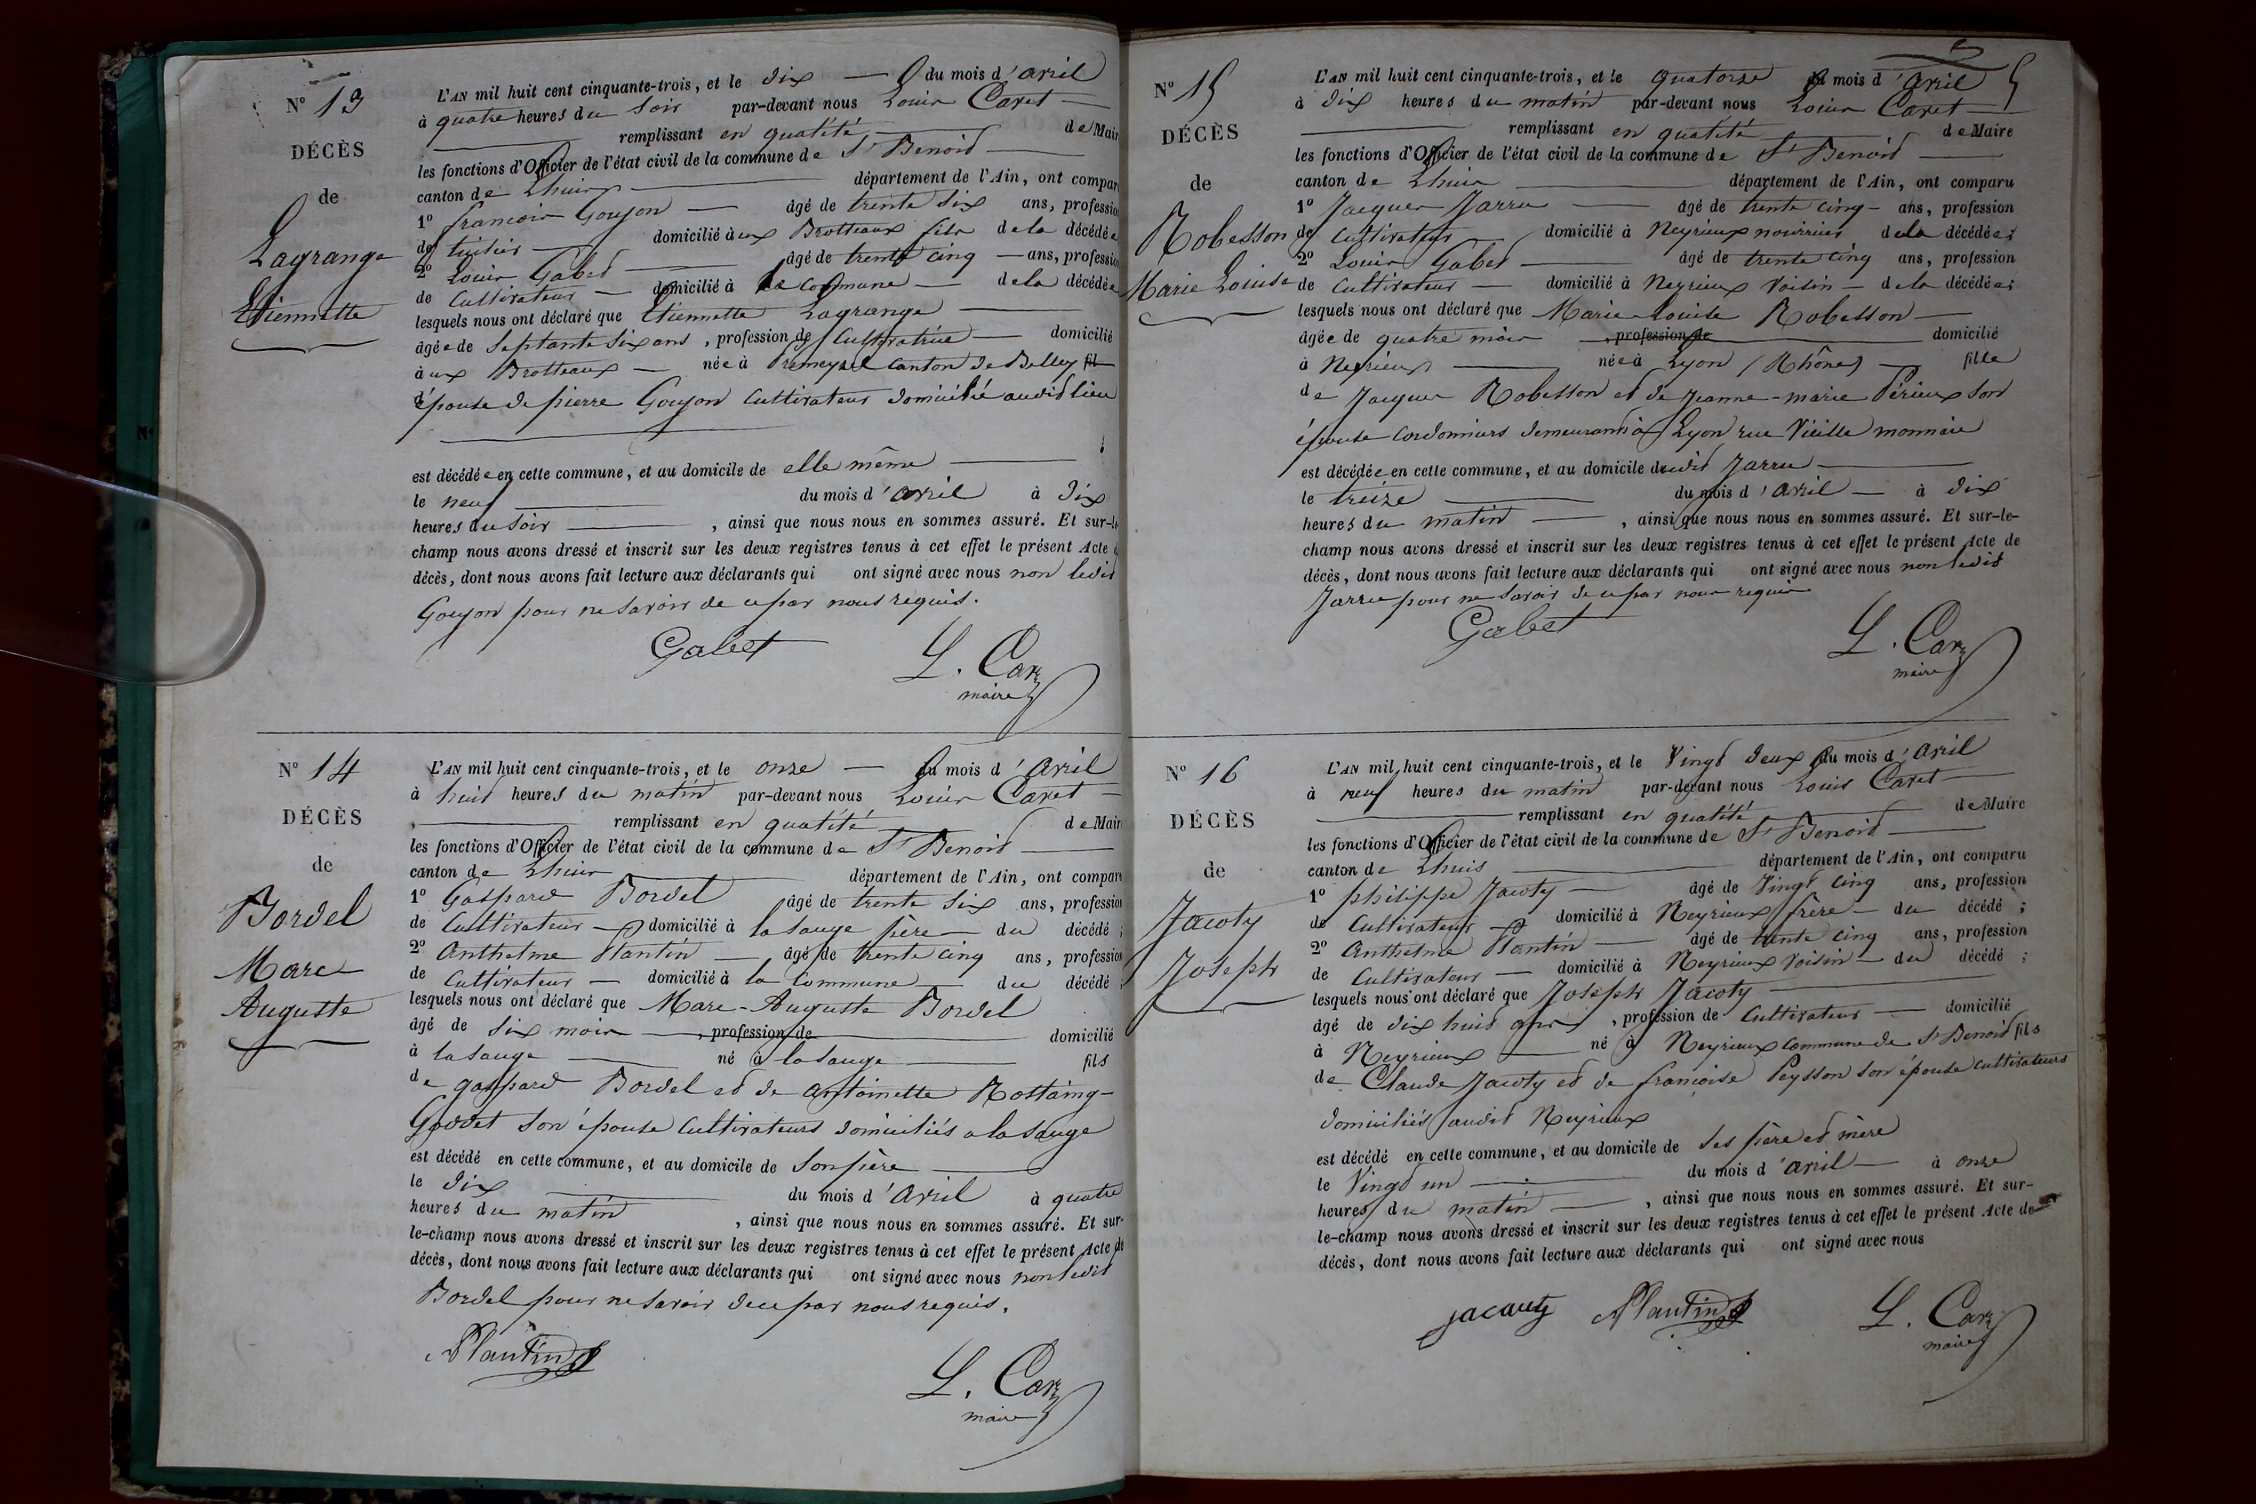 N° 13
DÉCÈS
de
Lagrange
Etiennette
L'AN mil huit cent cinquante-trois, et le dix — du mois d'avril
à quatre heures du soir par-devant nous Louis Caret —
remplissant en qualité de Mair
les fonctions d'Officier de l'état civil de la commune de St Benoid —
canton de Lhuis — département de l'Ain, ont compar
1° françois Goujon — âgé de trente six ans, profession
de domicilié aux Brotteaux fils de la décédée
2° Louis Gabet — âgé de trente cinq — ans, profession
de Cultivateur — domicilié à la Commune — de la décédée
lesquels nous ont déclaré que Etiennette Lagrange —
âgée de Septante Six ans, profession de Cultivatrice — domicilié
aux Brotteaux — née à Premeyzel Canton de Belley fil
épouse de pierre Goujon Cultivateur domicilié audit lieu
est décédée en cette commune, et au domicile de elle même —
le neuf — du mois d'avril à dix
heures du soir — , ainsi que nous nous en sommes assuré. Et sur-le
champ nous avons dressé et inscrit sur les deux registres tenus à cet effet le présent Acte d
décès, dont nous avons fait lecture aux déclarants qui ont signé avec nous non ledit
Goujon pour ne savoir de ce par nous requis.
Gabet L. Caret
maire
N° 14
DÉCÈS
de
Bordel
Marc
Auguste
L'AN mil huit cent cinquante-trois, et le onze — du mois d'avril
à huit heures du matin par-devant nous Louis Caret —
remplissant en qualité de Mair
les fonctions d'Officier de l'état civil de la commune de St Benoid —
canton de Lhuis — département de l'Ain, ont compar
1° Gaspard Bordel âgé de trente Six ans, profession
de Cultivateur — domicilié à la Sauge père — du décédé ;
2° Anthelme Plantin — âgé de trente cinq ans, profession
de Cultivateur — domicilié à la Commune — du décédé ;
lesquels nous ont déclaré que Marc-Auguste Bordel
âgé de Six mois — , profession de — domicilié
à la Sauge — né à la Sauge — fils
de gaspard Bordel et de antoinette Rostaing-
Goddet son épouse Cultivateurs domiciliés a la Sauge
est décédé en cette commune, et au domicile de Son père —
le dix — du mois d'avril à quatre
heures du matin , ainsi que nous nous en sommes assuré. Et sur-
le-champ nous avons dressé et inscrit sur les deux registres tenus à cet effet le présent Acte de
décès, dont nous avons fait lecture aux déclarants qui ont signé avec nous non ledit
Bordel pour ne savoir de ce par nous requis.
Plantin L. Caret
maire
5
N° 15
DÉCÈS
de
Robesson
Marie Louise
L'AN mil huit cent cinquante-trois, et le quatorze du mois d'avril
à dix heures du matin par-devant nous Louis Caret —
remplissant en qualité de Maire
les fonctions d'Officier de l'état civil de la commune de St Benoid —
canton de Lhuis — département de l'Ain, ont comparu
1° Jacques Jarru — âgé de trente cinq — ans, profession
de Cultivateur domicilié à Neyrieux nourricier de la décédée ;
2° Louis Gabet — âgé de trente cinq ans, profession
de Cultivateur — domicilié à Neyrieux Voisin — de la décédée ;
lesquels nous ont déclaré que Marie-Louise Robesson —
âgée de quatre mois — , profession de — domicilié
à Neyrieux — née à Lyon (Rhône) — fille
de Jacques Robesson et de Jeanne-marie Périeux son
épouse Cordonniers demeurant à Lyon rue Vieille monnaie
est décédée en cette commune, et au domicile dudit Jarru —
le treize — du mois d'avril — à dix
heures du matin — , ainsi que nous nous en sommes assuré. Et sur-le-
champ nous avons dressé et inscrit sur les deux registres tenus à cet effet le présent Acte de
décès, dont nous avons fait lecture aux déclarants qui ont signé avec nous non ledit
Jarru pour ne savoir de ce par nous requis
Gabet L. Caret
maire
N° 16
DÉCÈS
de
Jacoty
Joseph
L'AN mil huit cent cinquante-trois, et le Vingt deux du mois d'avril
à neuf heures du matin par-devant nous Louis Caret —
remplissant en qualité de Maire
les fonctions d'Officier de l'état civil de la commune de St Benoid —
canton de Lhuis — département de l'Ain, ont comparu
1° philippe Jacoty — âgé de Vingt Cinq ans, profession
de Cultivateur — domicilié à Neyrieux frère — du décédé ;
2° Anthelme Plantin — âgé de trente cinq ans, profession
de Cultivateur — domicilié à Neyrieux Voisin — du décédé ;
lesquels nous ont déclaré que Joseph Jacoty —
âgé de dix huit ans, profession de Cultivateur — domicilié
à Neyrieux — né à Neyrieux Commune de St Benoid fils
de Claude Jacoty et de françoise Peysson son épouse Cultivateurs
domiciliés audit Neyrieux
est décédé en cette commune, et au domicile de Ses père et mère
le Vingt un — du mois d'avril — à onze
heures du matin — , ainsi que nous nous en sommes assuré. Et sur-
le-champ nous avons dressé et inscrit sur les deux registres tenus à cet effet le présent Acte de
décès, dont nous avons fait lecture aux déclarants qui ont signé avec nous
jacouty Plantin L. Caret
maire